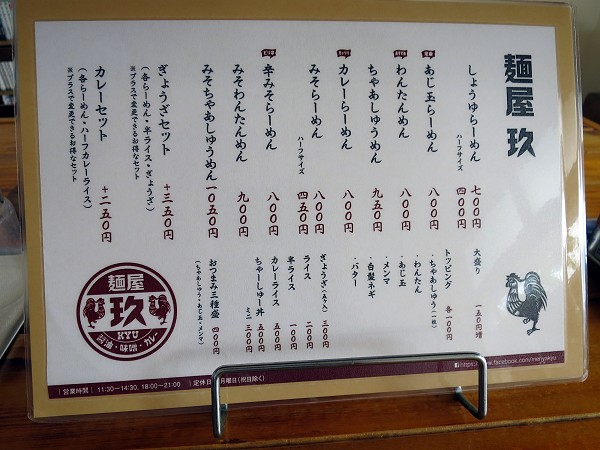 麺屋 玖
しょうゆらーめん 七〇〇円
ハーフサイズ 四〇〇円
あじ玉らーめん 八〇〇円
わんたんめん 八〇〇円
ちゃあしゅうめん 九五〇円
カレーらーめん 八〇〇円
みそらーめん 八〇〇円
ハーフサイズ 四五〇円
辛みそらーめん 八〇〇円
みそわんたんめん 九〇〇円
みそちゃあしゅうめん 一〇五〇円
ぎょうざセット +三五〇円
(各らーめん・半ライス・ぎょうざ)
※プラスで変更できるお得なセット
カレーセット +二五〇円
(各らーめん・ハーフカレーライス)
※プラスで変更できるお得なセット
大盛り 一五〇円増
トッピング 各一〇〇円
・ちゃあしゅう(一枚)
・わんたん
・あじ玉
・メンマ
・白髪ネギ
・バター
ぎょうざ 三〇〇円
ライス 二〇〇円
半ライス 一〇〇円
カレーライス 五〇〇円
ちゃーしゅー丼 五〇〇円
ミニ 三〇〇円
おつまみ三種盛 四〇〇円
(ちゃあしゅう・あじ玉・メンマ)
麺屋
玖
KYU
醤油・味噌・カレー
https:/
.facebook.com/menyakyu
|営業時間| 11:30~14:30, 18:00~21:00 |定休日
月曜日(祝日除く)